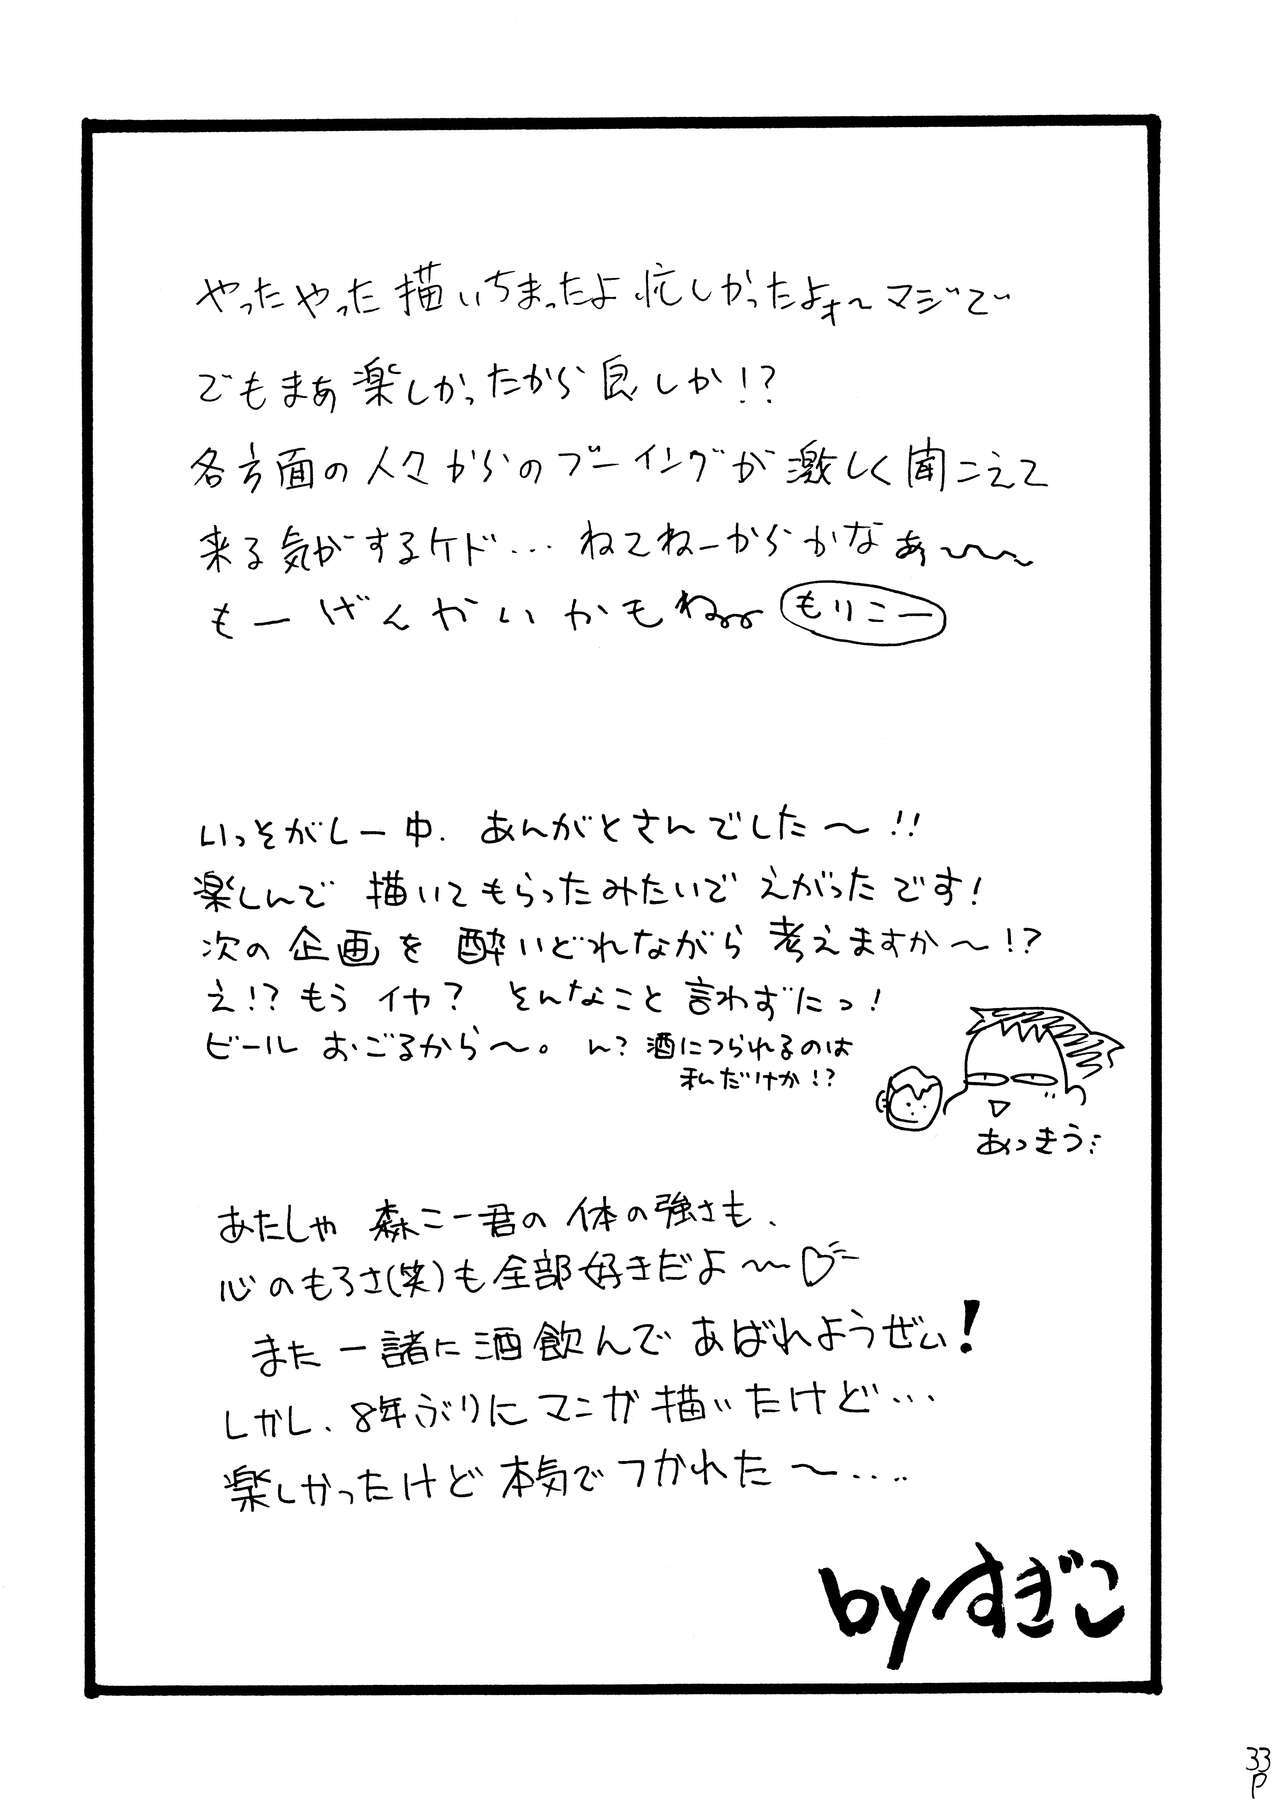 やったやった描いちまったよ忙しかったよォ～マジで
でもまぁ楽しかったから良しか!?
各方面の人々からのブーイングが激しく聞こえて
来る気がするケド... ねてねーからかなぁ～～
もーげんかいかもね もりこー
いっそがしー中、あんがとさんでした～!!
楽しんで描いてもらったみたいでえがったです!
次の企画を酔いどれながら考えますか～!?
え!?もうイヤ? そんなこと言わずにっ!
ビールおごるから～。 ん?酒につられるのは
私だけか!?
あっきう
あたしゃ 森こー君の体の強さも、
心のもろさ(笑)も全部好きだよ～♡
また一諸に酒飲んであばれようぜぃ!
しかし、8年ぶりにマンガ描いたけど...
楽しかったけど本気でつかれた～....
byすぎこ
33P